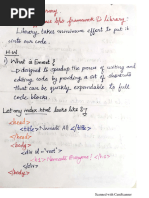 Library takes minimum effort to put it
into our code.
H.W
1) What is Emmet?
→ Designed to speedup the process of writing and
editing code by providing a set of shortcuts
that can be quickly expandable to full
code blocks.
Let my index.html looks like
<head>
<title> Namaste AI </title>
</head>
<body>
<div id = "root">
<h1> Namaste Everyone! </h1>
</div>
Scanned with CamScanner